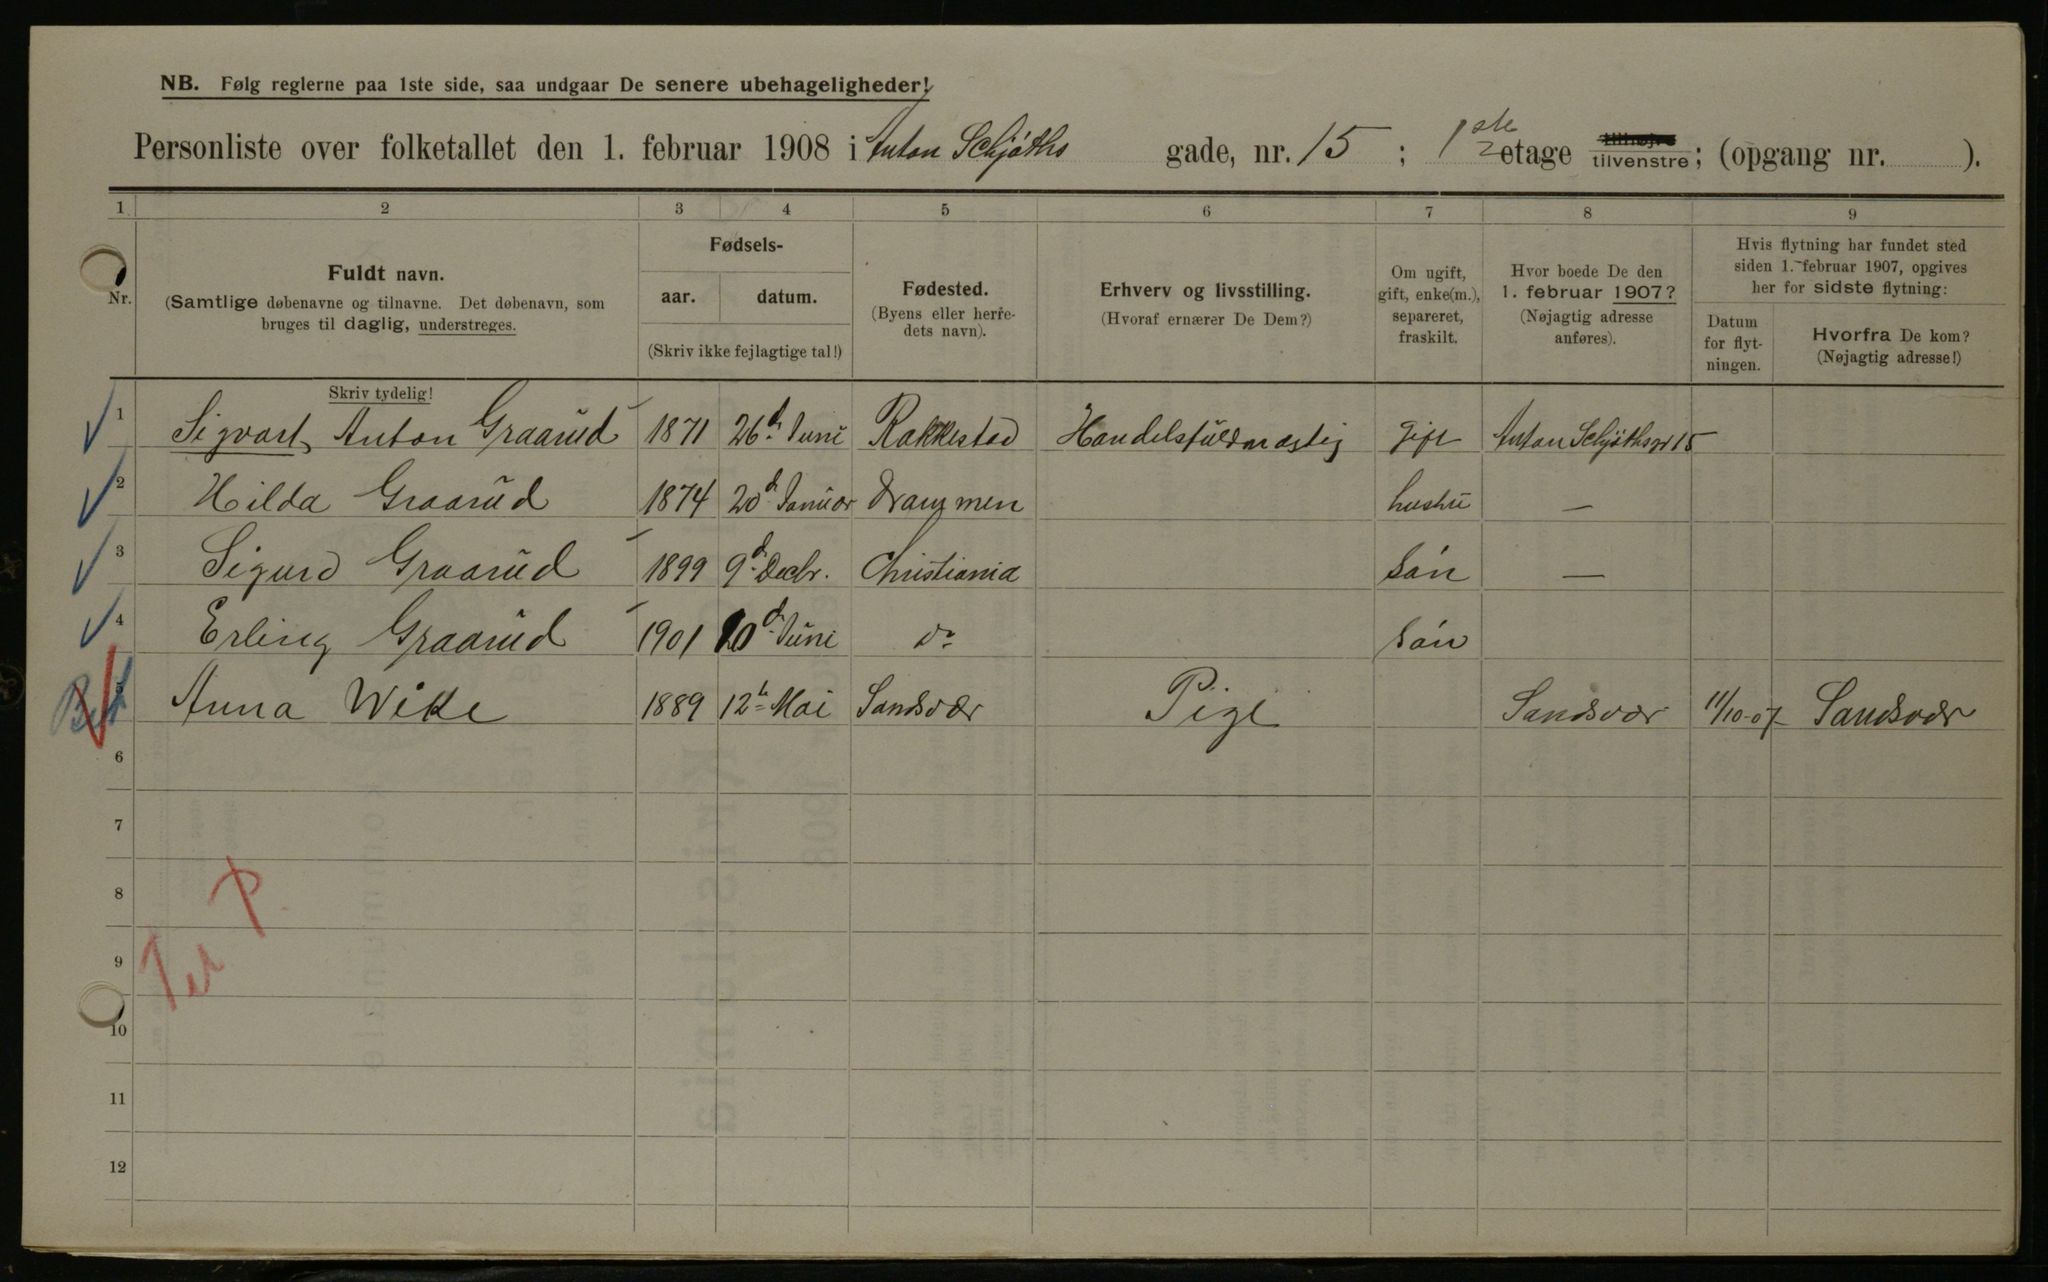 NB. Følg reglerne paa 1ste side, saa undgaar De senere ubehageligheder!
Personliste over folketallet den 1. februar 1908 i Anton Schjøths gade, nr. 15 ; 1ste etage tilhøjre tilvenstre; (opgang nr. ).
1 2 3 4 5 6 7 8 9
Nr.
Fuldt navn.
(Samtlige døbenavne og tilnavne. Det døbenavn, som
bruges til daglig, understreges.
Fødsels-
aar. datum.
(Skriv ikke fejlagtige tal!)
Fødested.
(Byens eller herre-
dets navn).
Erhverv og livsstilling.
(Hvoraf ernærer De Dem?)
Om ugift,
gift, enke(m.),
separeret,
fraskilt.
Hvor boede De den
1. februar 1907?
(Nøjagtig adresse
anføres).
Hvis flytning har fundet sted
siden 1. februar 1907, opgives
her for sidste flytning:
Datum
for flyt-
ningen.
Hvorfra De kom?
(Nøjagtig adresse!)
Skriv tydelig!
1 Sigvart Anton Graarud 1871 26d. Juni Rakkestad Handelsfuldmægtig gift Anton Schjøthsgt 15
2 Hilda Graarud 1874 20d. Januar Drammen hustru —
3 Sigurd Graarud 1899 9d. Decbr. Christiania Søn —
4 Erling Graarud 1901 10d. Juni do Søn
5 Anna Wike 1889 12te Mai Sandsvær Pige Sandsvær 11/10-07 Sandsvær
6
7
8
9
10
11
12